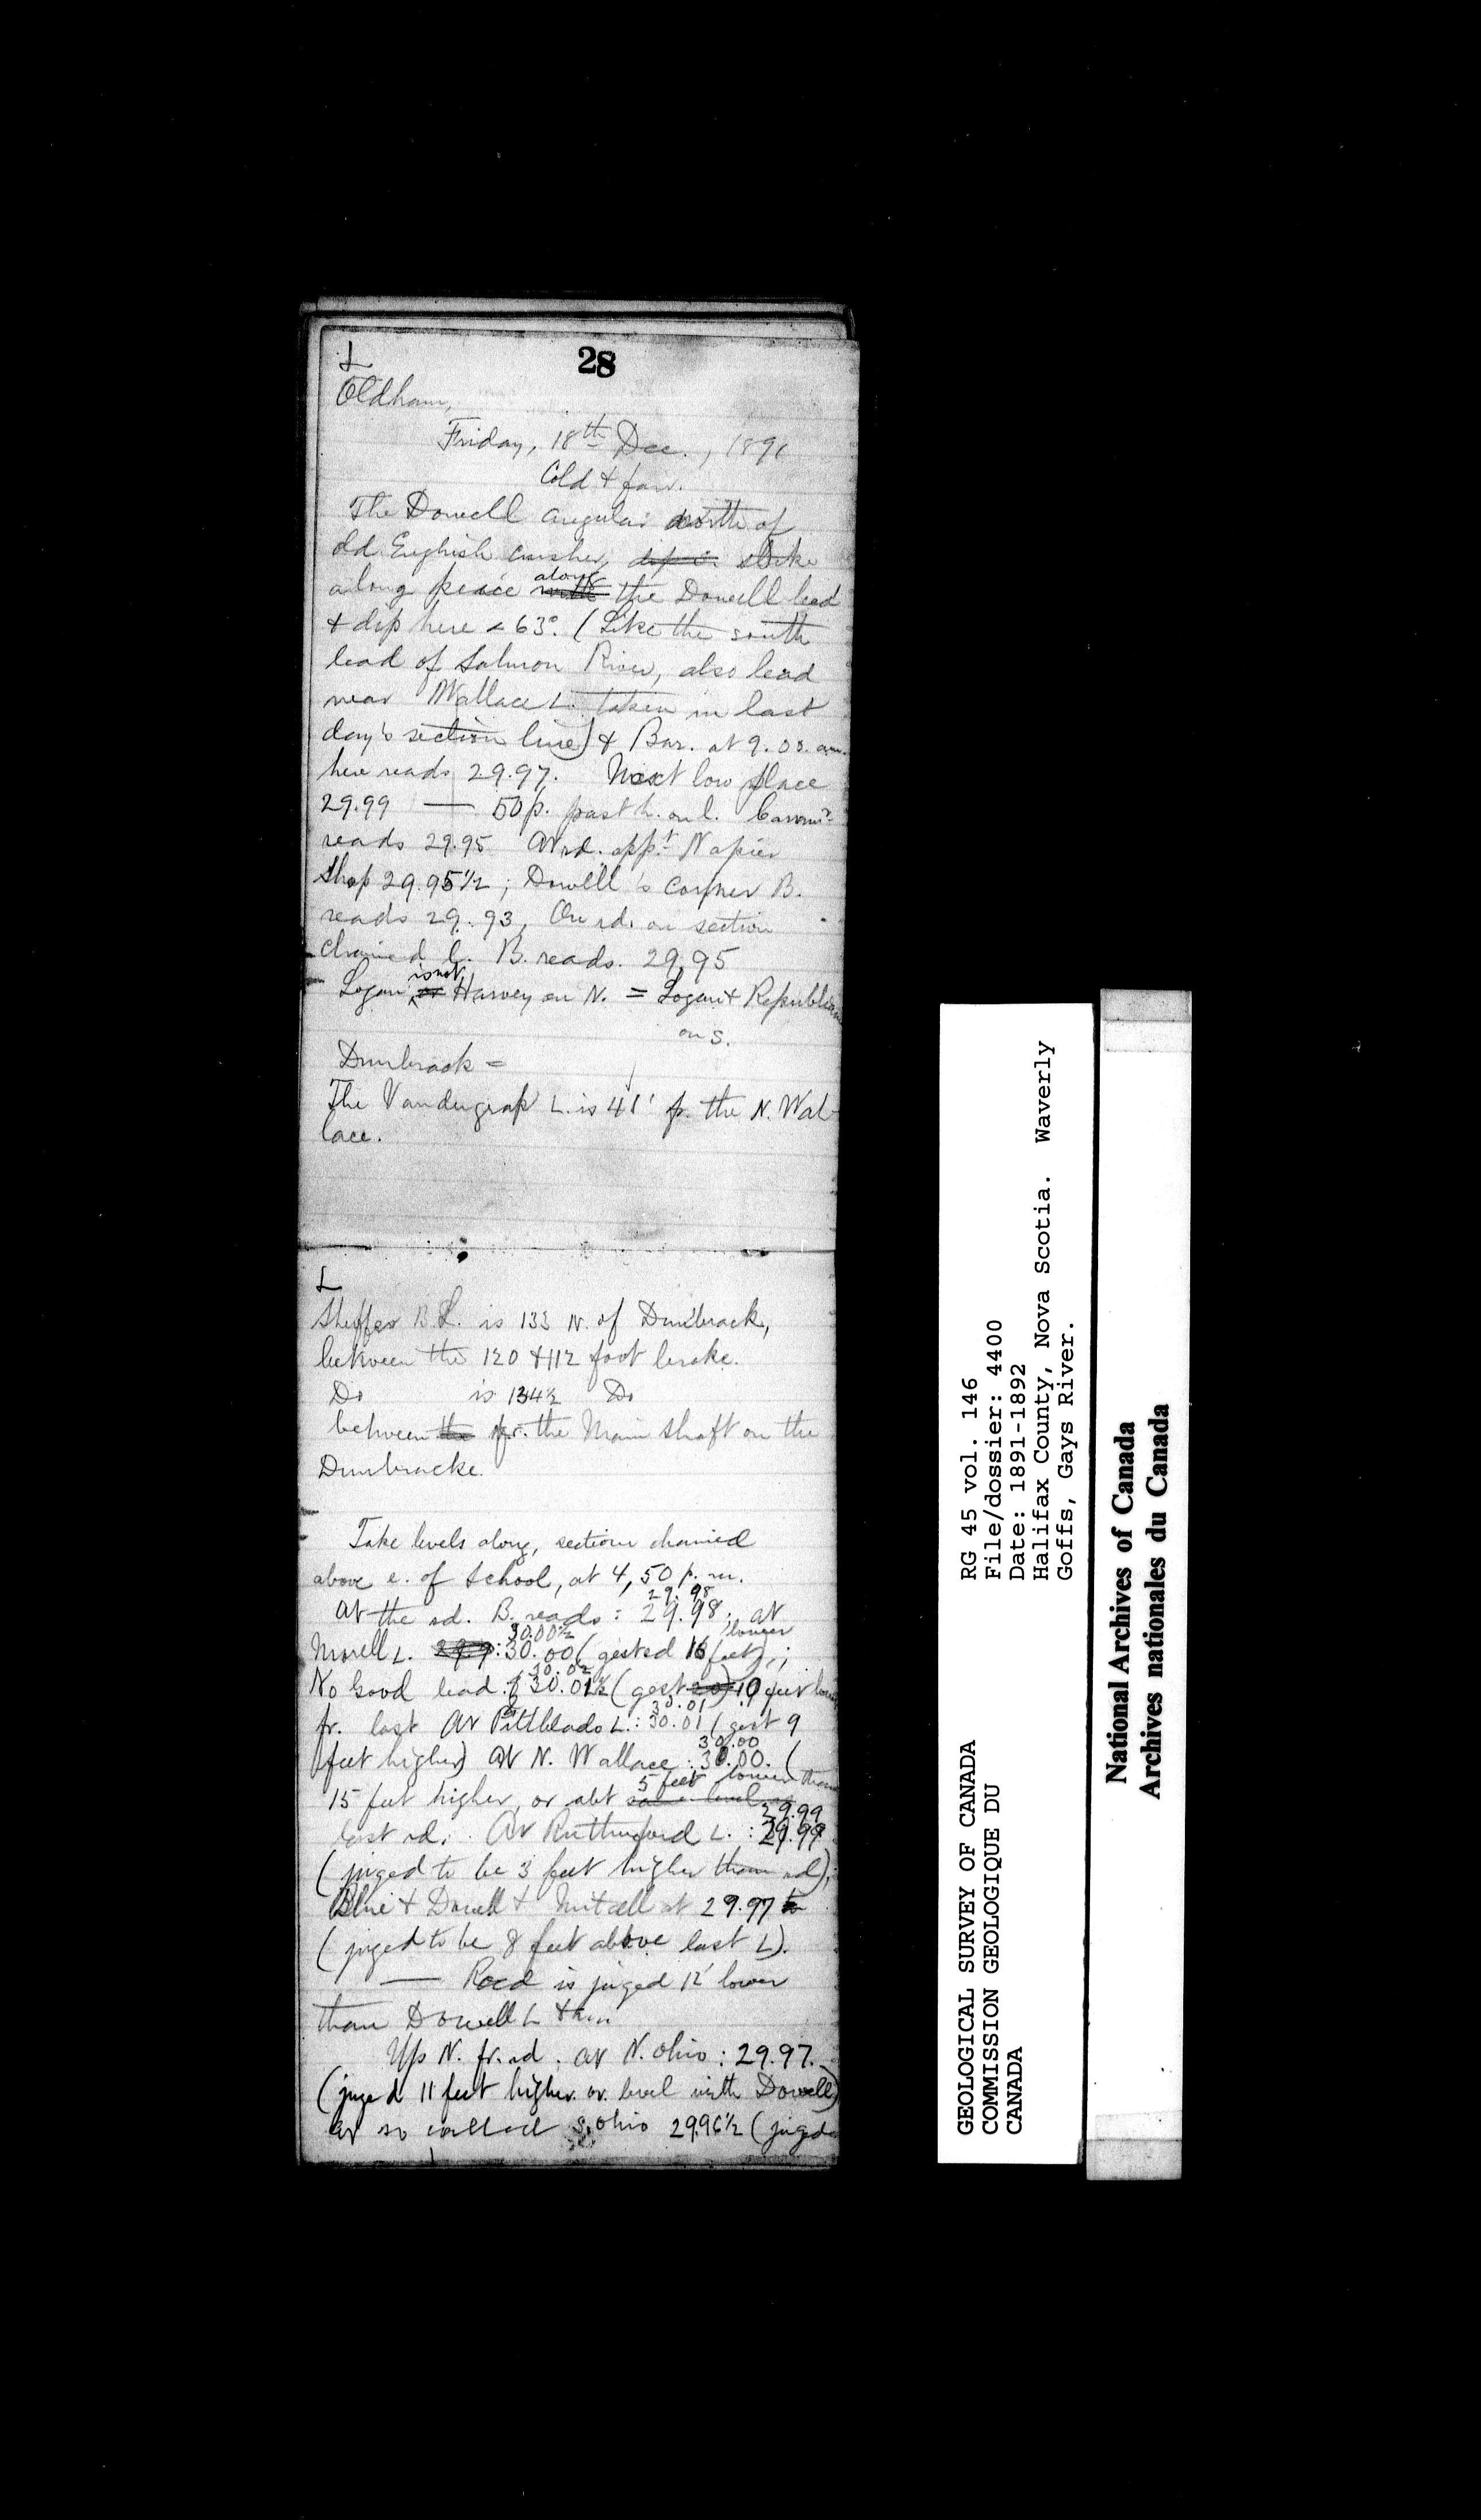 28
L
Oldham,
Friday, 18th Dec., 1891
Cold & fair.
The Dowell angular north of
old English crusher, strike
along along the Dowell lead
& dip here < 63°. (Like the south
lead of Salmon River, also lead
near Wallace L. taken in last
day's section line) & Bar. at 9.00 am.
here reads 29.97. Next low place
29.99 — 50 p. past h. on l.
reads 29.95 At rd. oppt Napier
Shop 29.95½; Dowell's corner B.
reads 29.93, On rd. on section
chained l. B. reads. 29.95
Logan is not Harvey on N. = Logan & Republican
on S.
Dunbrack =
The Vandergrap L. is 41' f. the N. Wal-
lace.
L
Sheffer B.L. is 133 N. of Dunbrack,
between the 120 & 112 foot brake.
Do is 134½ Do
between the Main Shaft on the
Dunbracke.
Take levels along, section chained
above e. of School, at 4,50 p.m.
29.98
At the rd. B. reads: 29.98; at
30.00½ lower
Morell L. 299: 30.00 (gested 16 feet);
30.02
No Good lead: 30.01½ (gest 20) 10 feet lower
30.01
fr. last At Pittblado L.: 30.01 (gest 9
30.00
feet higher) At N. Wallace: 30.00. (
5 feet lower than
15 feet higher, or abt same level as
29.99
last rd. At Rutherford L.: 29.99
(juged to be 3 feet higher than rd);
Blue & Dowell & Mitcell at 29.97
(juged to be 8 feet above last L).
— Road is juged 12' lower
than Dowell L
Up N. fr. rd. at N. Ohio: 29.97.
(juged 11 feet higher or level with Dowell)
At so called S. Ohio 29.96½ (juged
GEOLOGICAL SURVEY OF CANADA
COMMISSION GEOLOGIQUE DU
CANADA
RG 45 vol. 146
File/dossier: 4400
Date: 1891-1892
Halifax County, Nova Scotia. Waverly
Goffs, Gays River.
National Archives of Canada
Archives nationales du Canada